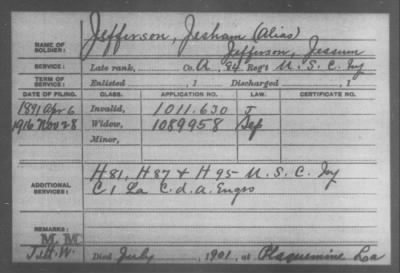 NAME OF SOLDIER: Jefferson, Jesham (Alias)
Jefferson, Jessum
SERVICE: Late rank, Co. A, 84 Reg't U. S. C. Inf
TERM OF SERVICE: Enlisted , 1 Discharged , 1
DATE OF FILING. CLASS. APPLICATION NO. LAW. CERTIFICATE NO.
1891 Apr 6 Invalid, 1011.630 J
1916 Nov 28 Widow, 1089958 Sep
Minor,
ADDITIONAL SERVICES: H 81, H 87 & H 95 U. S. C. Inf
C 1 La C. d. A. Engrs
REMARKS:
M. M
J.H.W. Died July , 1901, at Plaquemine La